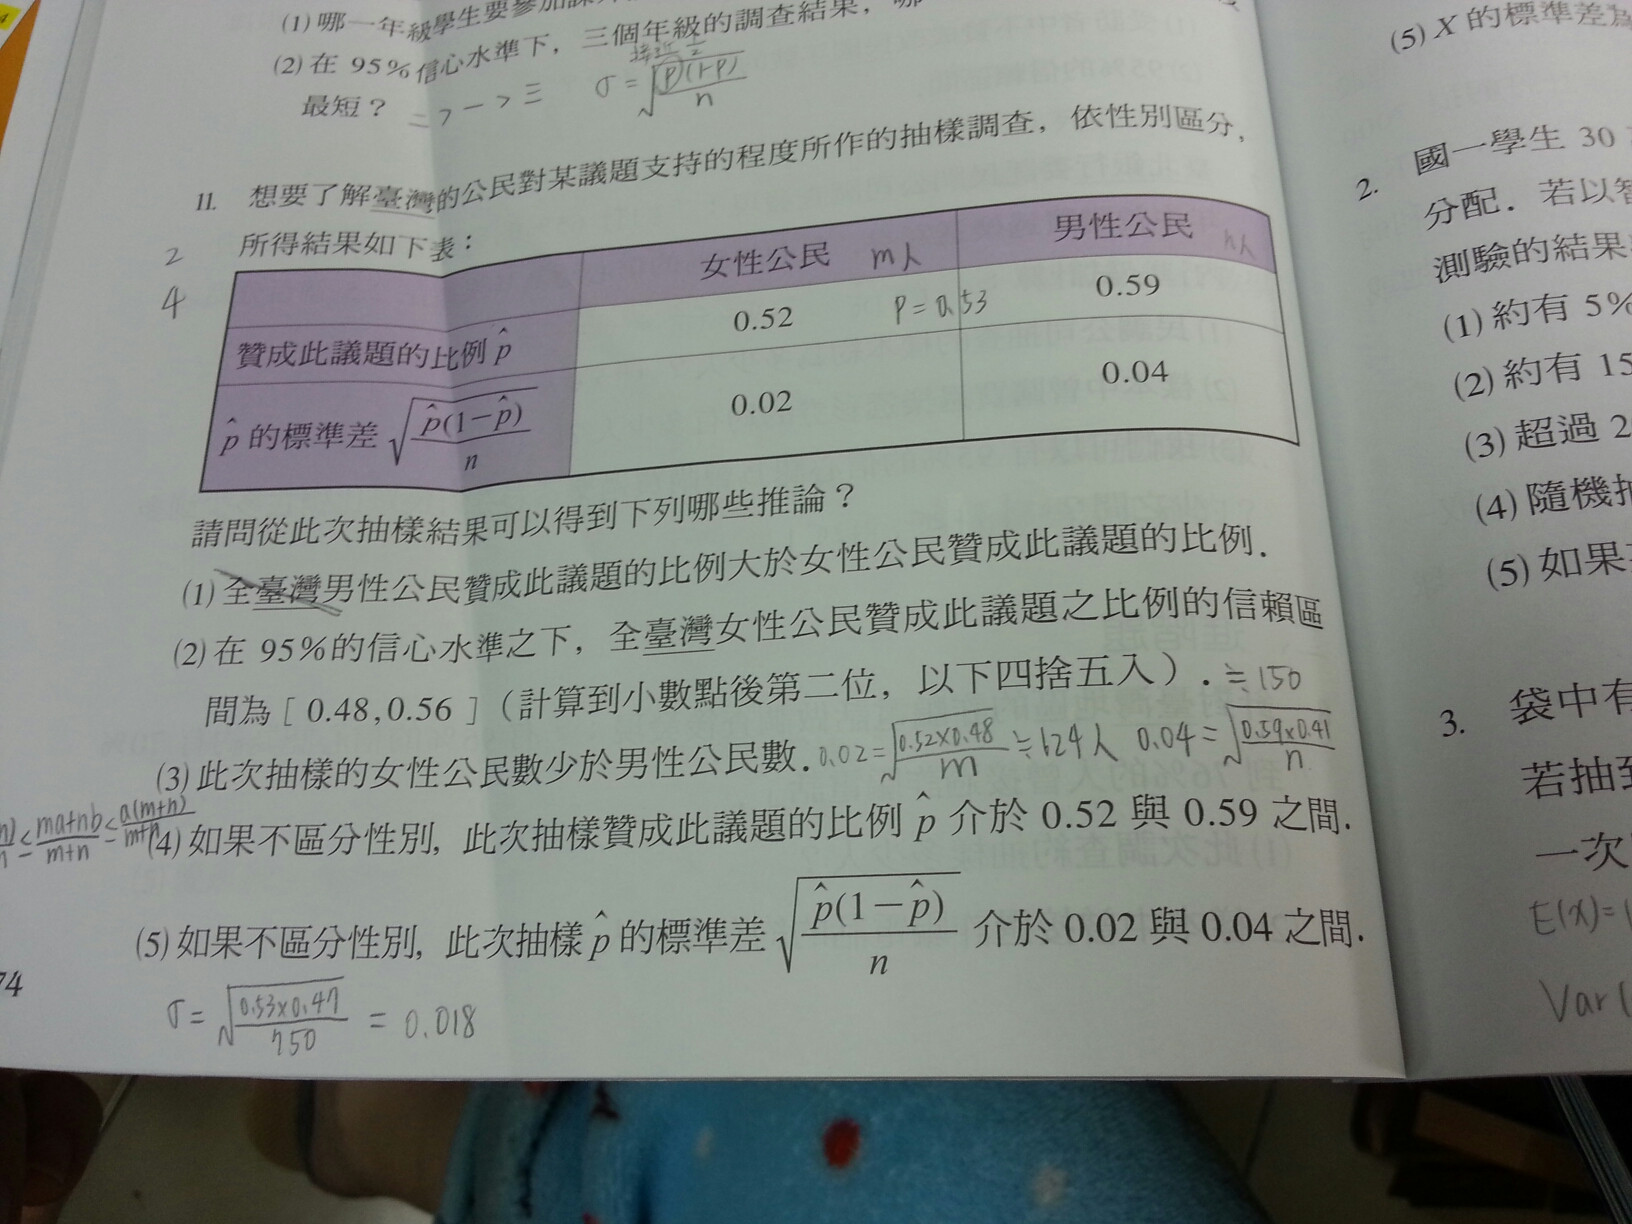 (1) 哪一年級學生要參加課
(5) X 的標準差為
(2) 在 95% 信心水準下, 三個年級的調查結果,
最短? 二 > 一 > 三
接近 1/2
σ = √(p(1-p)/n)
11. 想要了解臺灣的公民對某議題支持的程度所作的抽樣調查, 依性別區分,
所得結果如下表:
2
4
女性公民 m人 男性公民 n人
贊成此議題的比例 p̂ 0.52 p=0.53 0.59
p̂ 的標準差 √(p̂(1-p̂)/n) 0.02 0.04
請問從此次抽樣結果可以得到下列哪些推論?
(1) 全臺灣男性公民贊成此議題的比例大於女性公民贊成此議題的比例.
(2) 在 95% 的信心水準之下, 全臺灣女性公民贊成此議題之比例的信賴區
間為 [ 0.48, 0.56 ] (計算到小數點後第二位, 以下四捨五入). ≒150
(3) 此次抽樣的女性公民數少於男性公民數. 0.02 = √(0.52×0.48/m) ≒ 624人 0.04 = √(0.59×0.41/n)
≤ (ma+nb)/(m+n) ≤ a(m+n)/(m+n)
(4) 如果不區分性別, 此次抽樣贊成此議題的比例 p̂ 介於 0.52 與 0.59 之間.
(5) 如果不區分性別, 此次抽樣 p̂ 的標準差 √(p̂(1-p̂)/n) 介於 0.02 與 0.04 之間.
74
σ = √(0.53×0.47/750) = 0.018
2. 國一學生 30
分配. 若以智
測驗的結果
(1) 約有 5%
(2) 約有 15
(3) 超過 2
(4) 隨機抽
(5) 如果
3. 袋中有
若抽到
一次
E(X)=
Var(